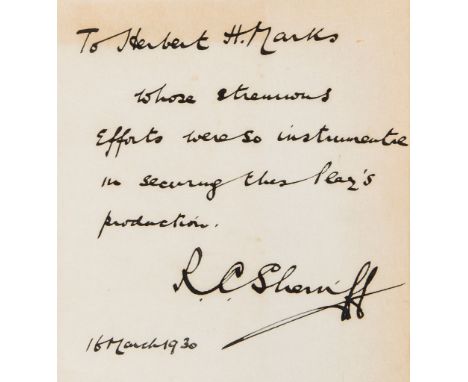 To Herbert H. Marks
whose strenuous
Efforts were so instrumental
in securing this Play's
production.
R. C. Sherriff
16 March 1930